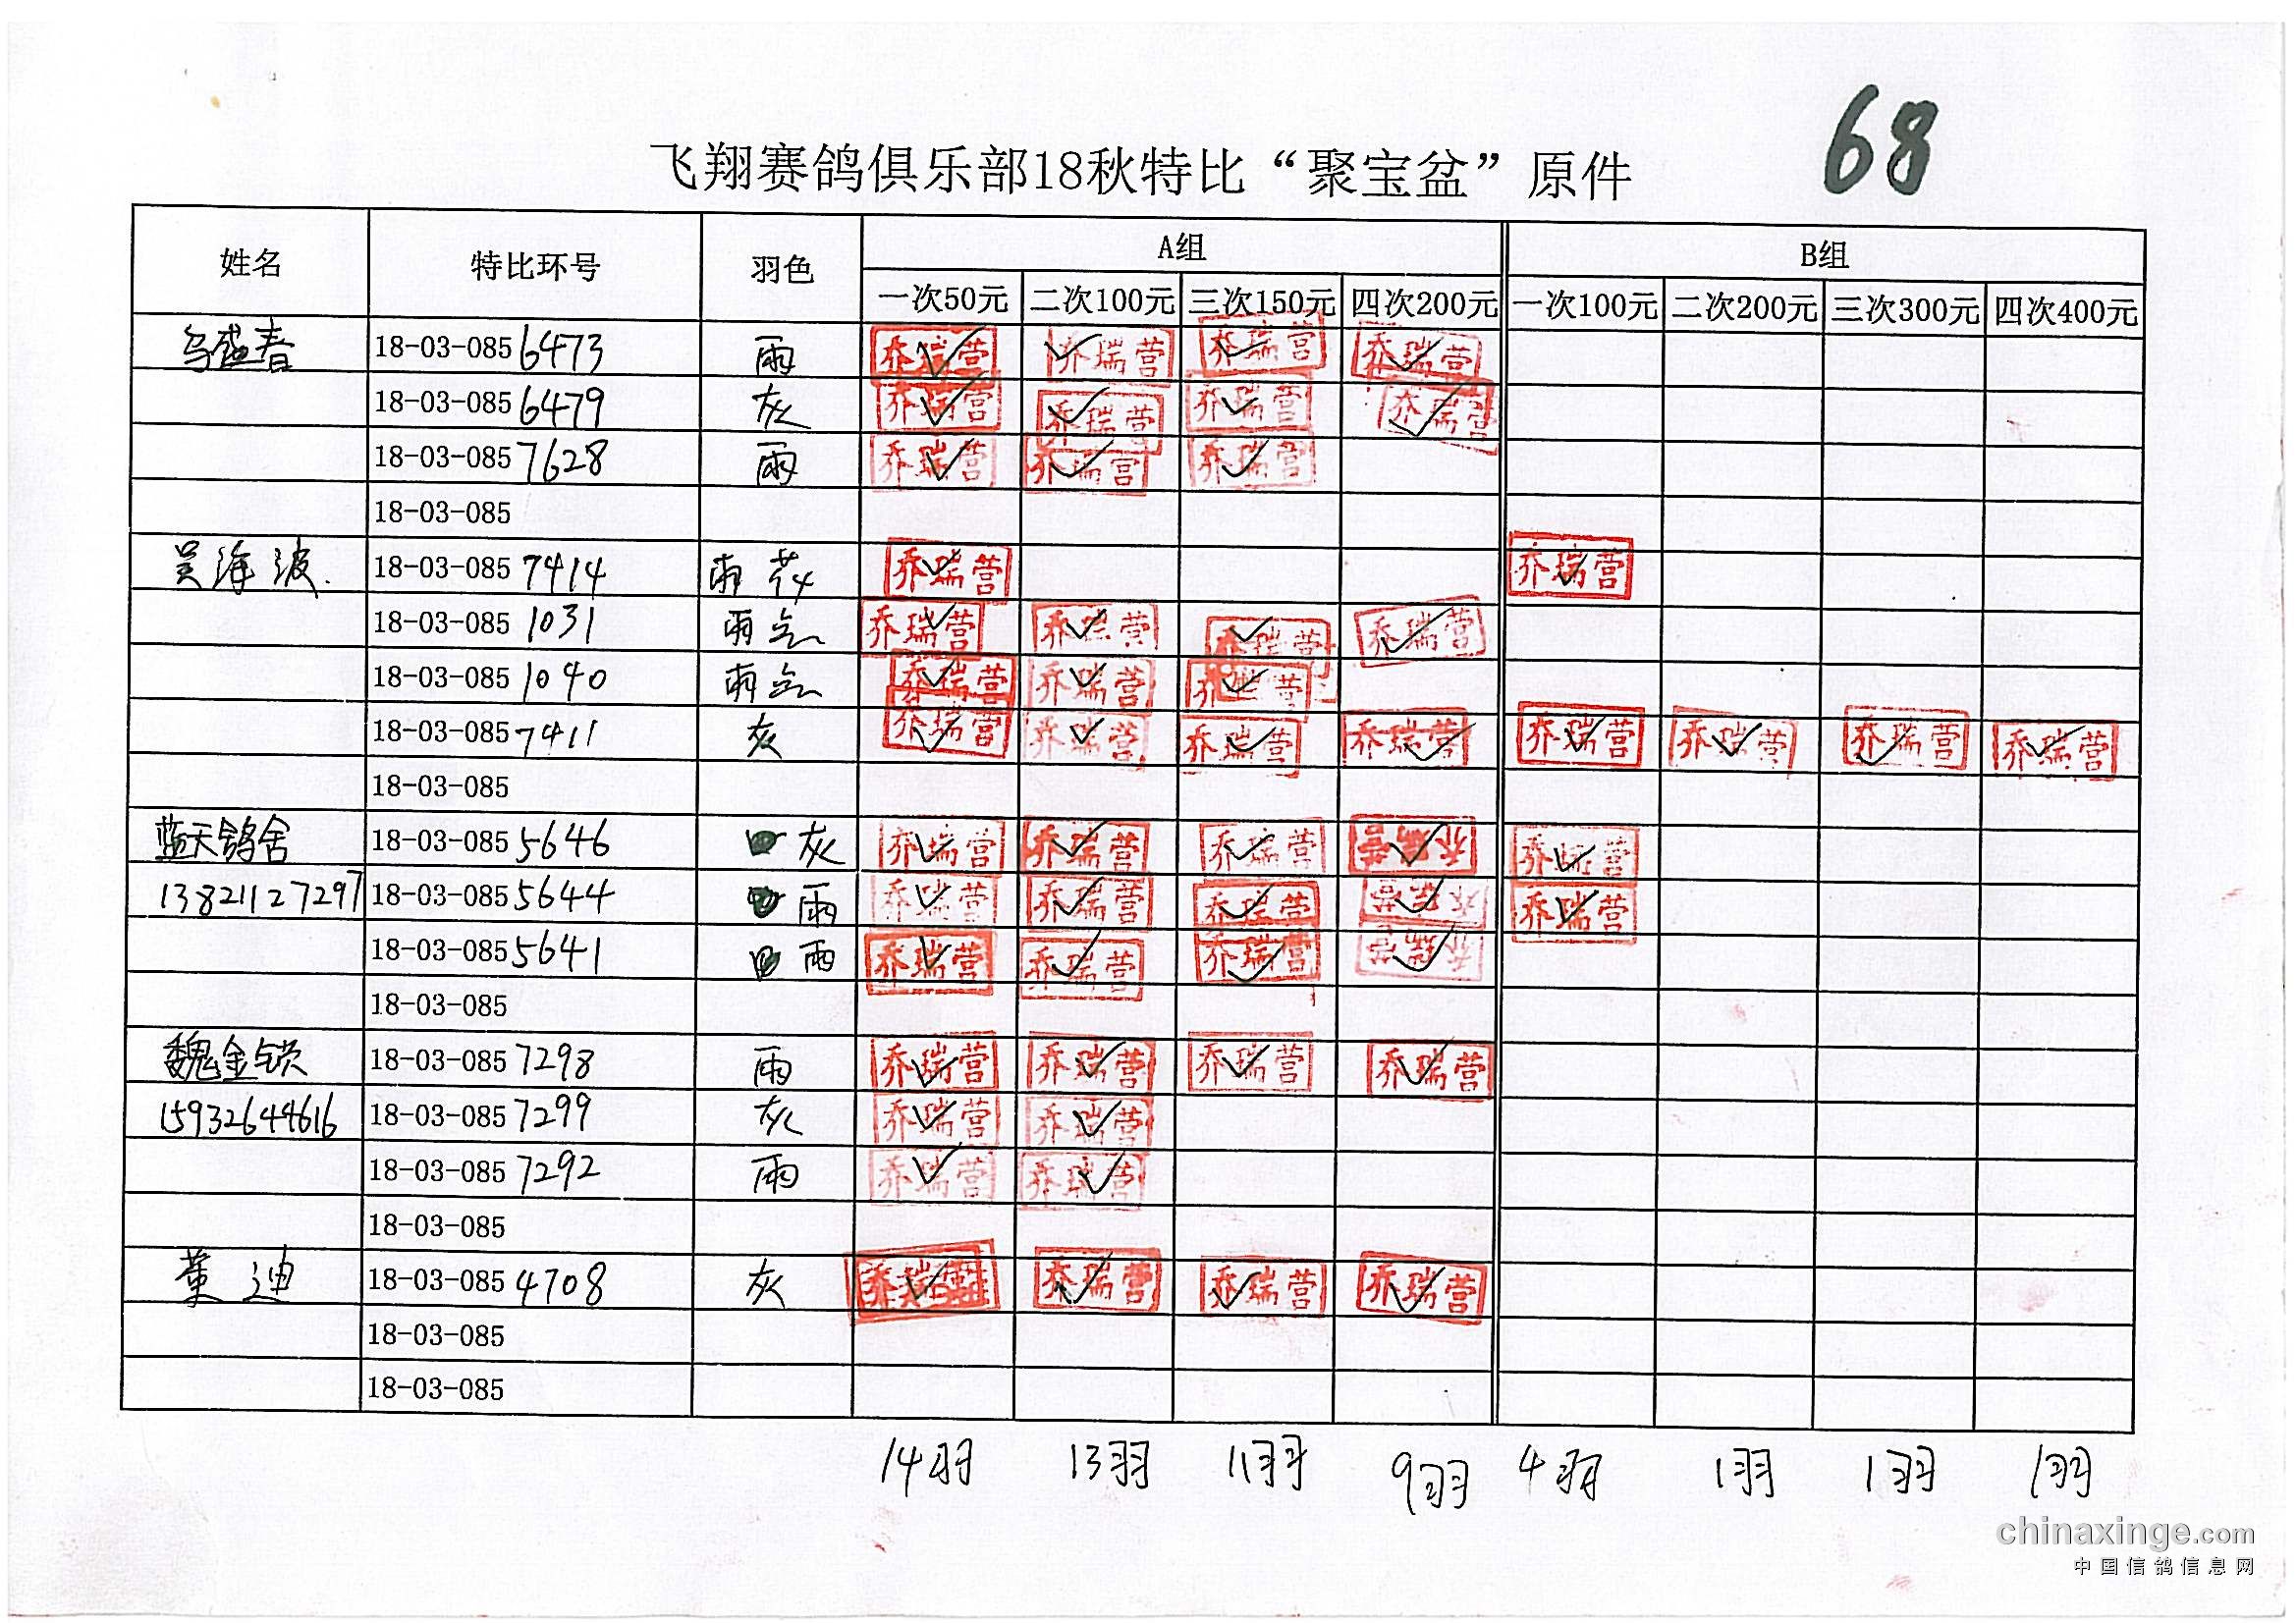 68
飞翔赛鸽俱乐部18秋特比“聚宝盆”原件
姓名 特比环号 羽色 A组 B组
一次50元 二次100元 三次150元 四次200元 一次100元 二次200元 三次300元 四次400元
盛春 18-03-085 6473 雨 乔瑞营 乔瑞营 乔瑞营 乔瑞营
18-03-085 6479 灰 乔瑞营 乔瑞营 乔瑞营 乔瑞营
18-03-085 7628 雨 乔瑞营 乔瑞营 乔瑞营
18-03-085
吴 波 18-03-085 7414 雨花 乔瑞营 乔瑞营
18-03-085 1031 雨 乔瑞营 乔瑞营 乔瑞营 乔瑞营
18-03-085 1040 雨 乔瑞营 乔瑞营 乔瑞营
18-03-085 7411 灰 乔瑞营 乔瑞营 乔瑞营 乔瑞营 乔瑞营 乔瑞营 乔瑞营 乔瑞营
18-03-085
蓝天鸽舍 18-03-085 5646 灰 乔瑞营 乔瑞营 乔瑞营 乔瑞营 乔瑞营
13821127297 18-03-085 5644 雨 乔瑞营 乔瑞营 乔瑞营 乔瑞营 乔瑞营
18-03-085 5641 雨 乔瑞营 乔瑞营 乔瑞营 乔瑞营
18-03-085
魏金锁 18-03-085 7298 雨 乔瑞营 乔瑞营 乔瑞营 乔瑞营
15932644616 18-03-085 7299 灰 乔瑞营 乔瑞营
18-03-085 7292 雨 乔瑞营 乔瑞营
18-03-085
董迪 18-03-085 4708 灰 乔瑞营 乔瑞营 乔瑞营 乔瑞营
18-03-085
18-03-085
14羽 13羽 11羽 9羽 4羽 1羽 1羽 1羽
chinaxinge.com
中国信鸽信息网